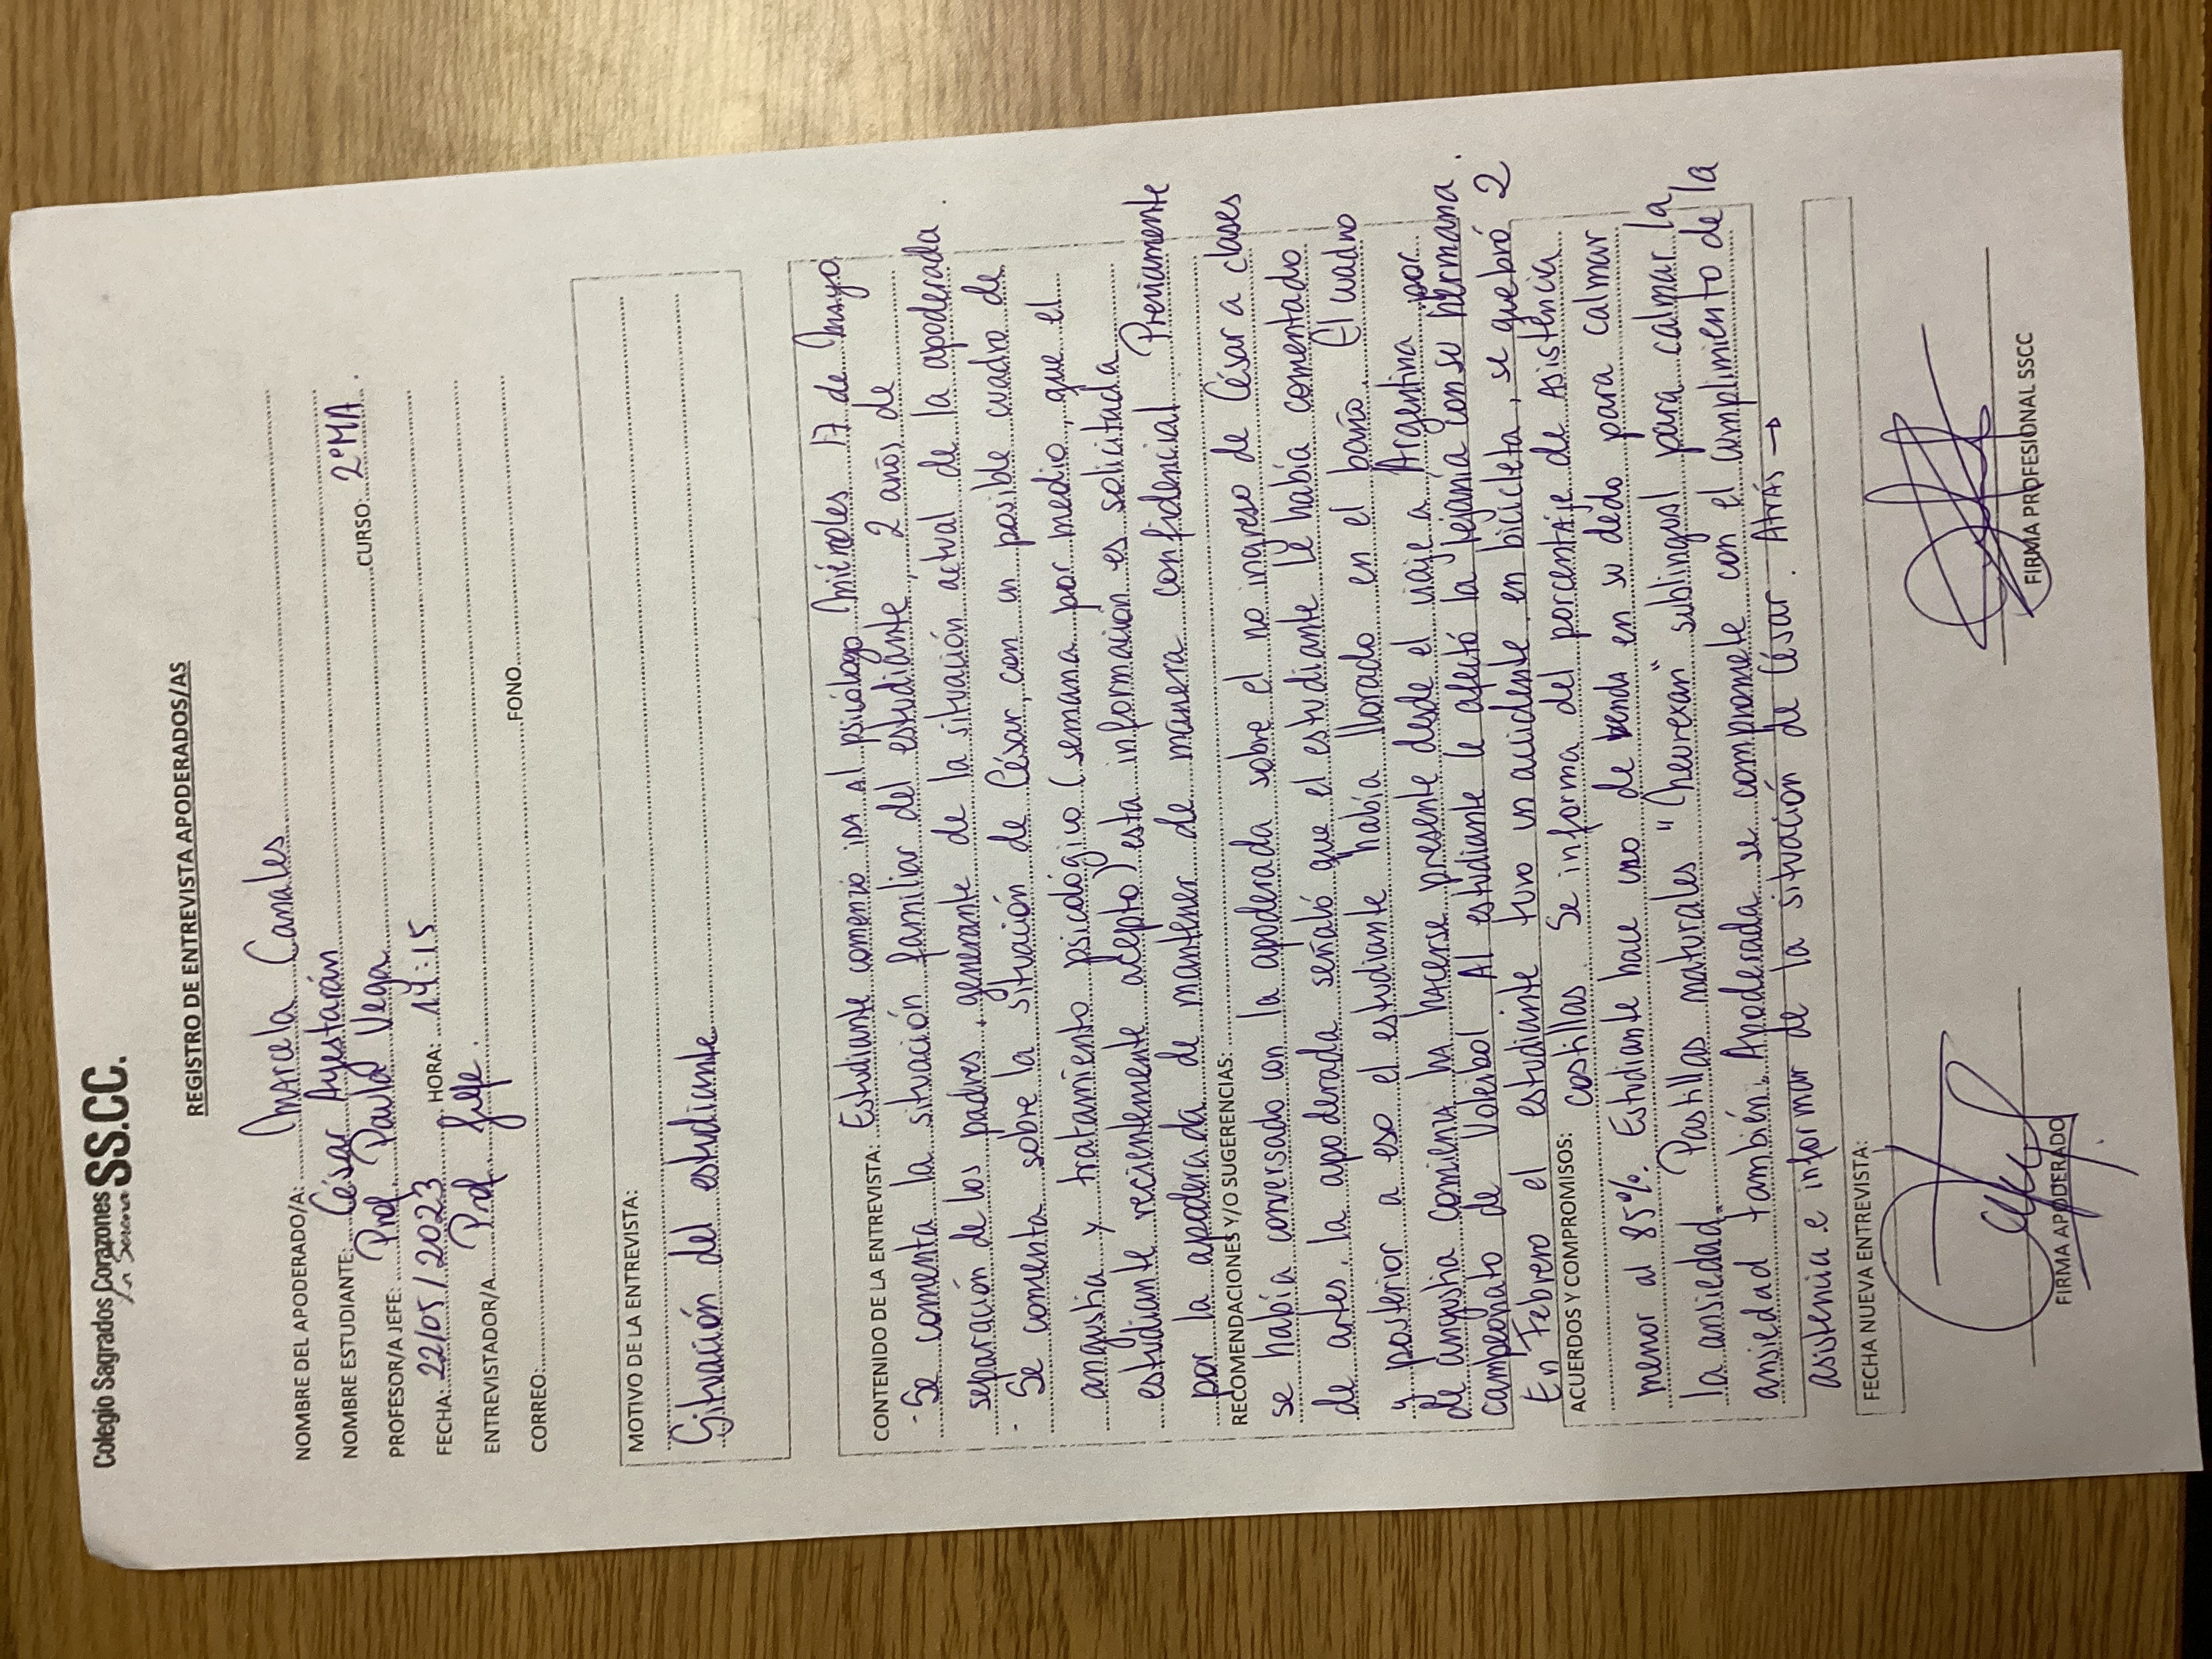 Colegio Sagrados Corazones SS.CC.
La Serena
REGISTRO DE ENTREVISTA APODERADOS/AS
NOMBRE DEL APODERADO/A: Marcela Canales
NOMBRE ESTUDIANTE: César Ayestarán CURSO: 2°MA.
PROFESOR/A JEFE: Prof Paula Vega
FECHA: 22/05/2023 HORA: 14:15
ENTREVISTADOR/A Prof Jefe.
CORREO: FONO
MOTIVO DE LA ENTREVISTA:
Situación del estudiante
CONTENIDO DE LA ENTREVISTA: Estudiante comenzo ida al psicólogo Miércoles 17 de Mayo
- Se comenta la situación familiar del estudiante, 2 años de
separación de los padres, generante de la situación actual de la apoderada.
- Se comenta sobre la situación de César, con un posible cuadro de
angustia y tratamiento psicológico (semana por medio, que el
estudiante recientemente acepto) esta información es solicitada
por la apoderada de mantener de manera confidencial Previamente
RECOMENDACIONES Y/O SUGERENCIAS:
se había conversado con la apoderada sobre el no ingreso de César a clases
de artes, la apoderada señaló que el estudiante le había comentado
y posterior a eso el estudiante había llorado en el baño. El cuadro
de angustia comienza ha hacerse presente desde el viaje a Argentina por
campeonato de Voleibol Al estudiante le afectó la lejanía con su hermana.
En Febrero el estudiante tuvo un accidente en bicicleta, se quebró 2
ACUERDOS Y COMPROMISOS: costillas Se informa del porcentaje de asistencia
menor al 85%. Estudiante hace uno de benda en su dedo para calmar
la ansiedad. Pastillas naturales "Neurexan" sublingual para calmar la
ansiedad también. Apoderada se compromete con el cumplimiento de la
asistencia e informar de la situación de César. Atrás →
FECHA NUEVA ENTREVISTA:
FIRMA APODERADO
FIRMA PROFESIONAL SSCC